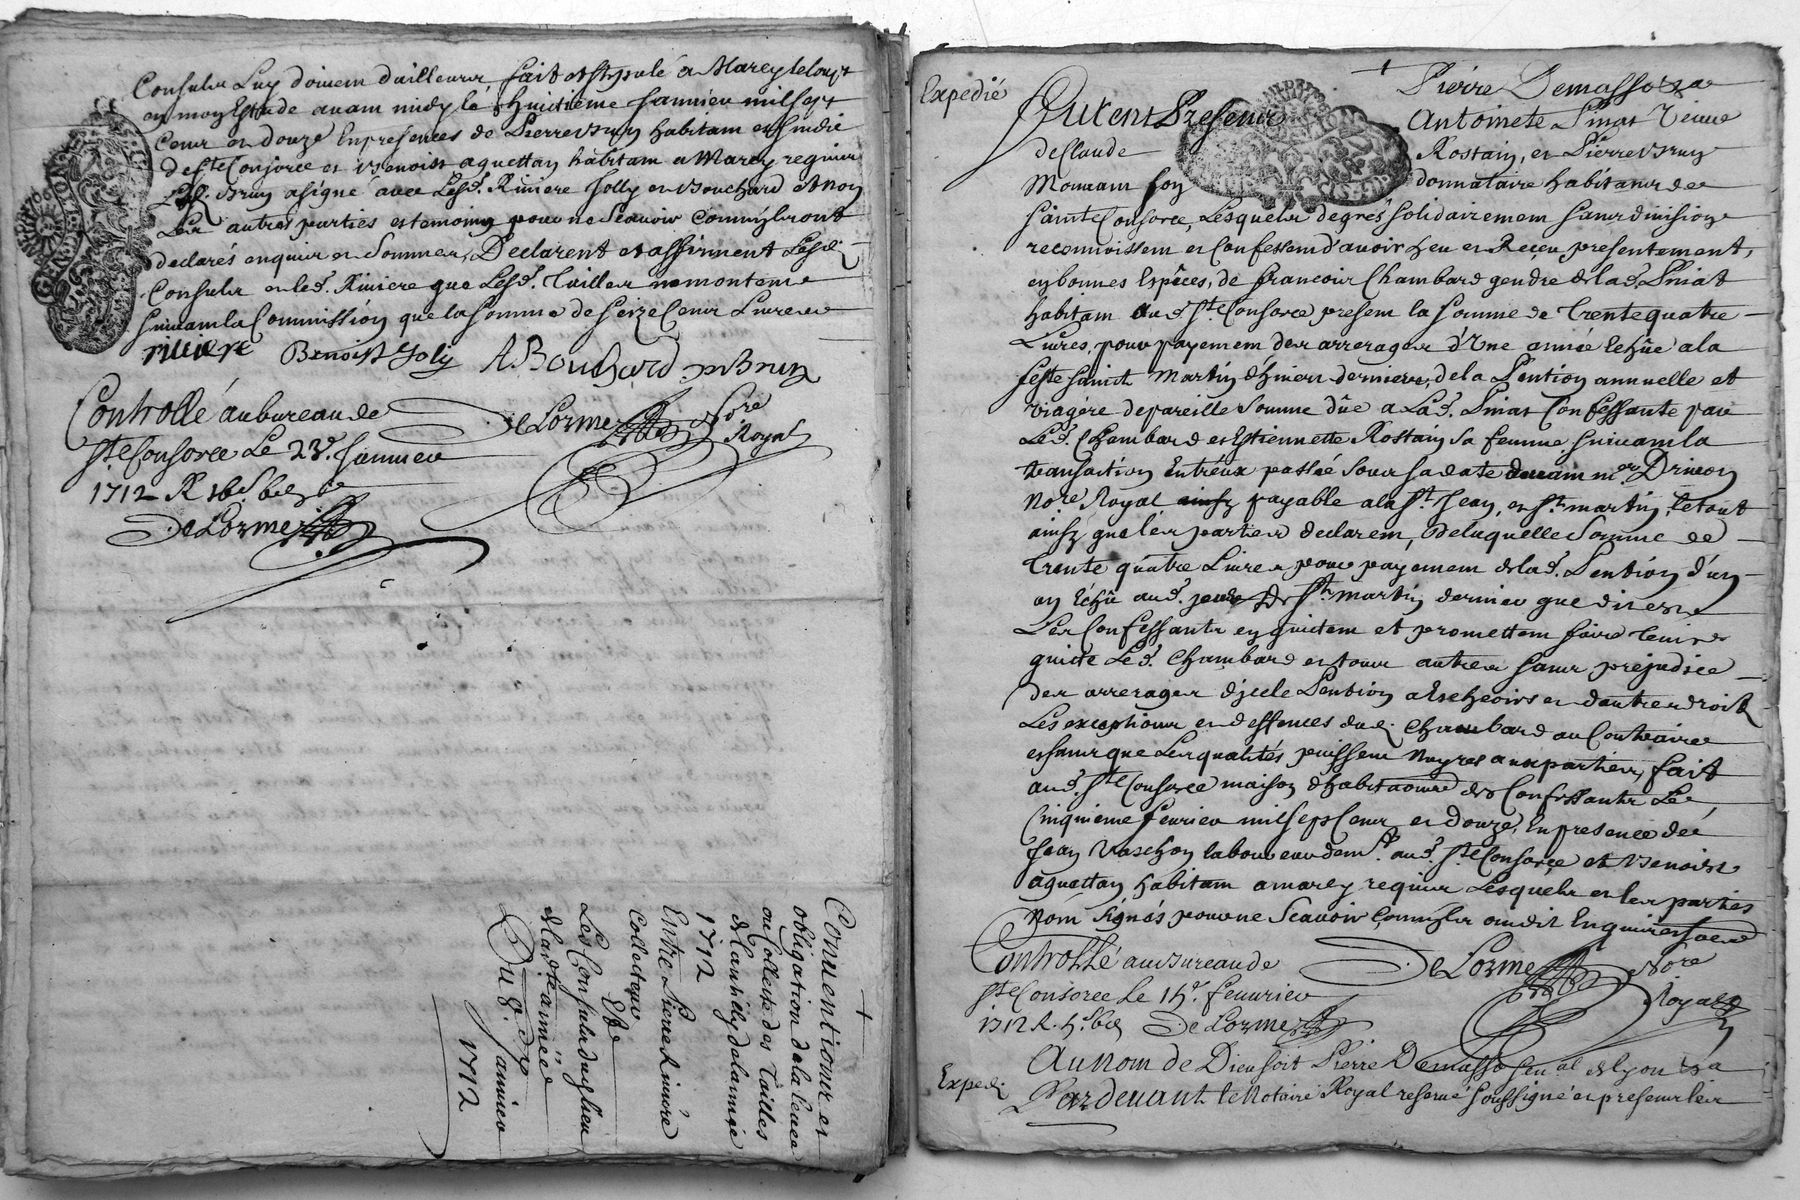 Consulz Luy doivem dailleurs fait et stipulé a Marcy le loup
en mon Estude avam midy le huictieme Janvier mil sept
Cent et douze En presences de Pierre Brun habitam et sindic
de Ste Consorce et Benoist aquettan habitam a Marcy requis
Led. Brun a signé avec Lesd. Riviere Jolly et Bouchard et non
Les autres parties et temoins pour ne Scavoir Comm'ils ont
declarés enquis et Sommes, Declarent et affirment Lesd.
Consulz et led. Riviere que Lesd. Tailles ne montent
suivam la Commission que la somme de Seize Cent Livres
riviere Benoist Joly A. Bouchard P Brun
Controllé au bureau de
Ste Consorce Le 23e Janvier
1712 R
DeLorme
DeLorme Nore
Royal
Conventions et
obligation de la levee
ou Collecte des Tailles
de Chantilly de lannée
1712
Entre Pierre Riviere
Collecteur
Et
Les Consulz dud. lieu
de lad. année
Du 8e Janvier
1712
Expedié
Furent Presens Pierre Demasso
Antoinete Pinat Veuve
de Claude Rostain, et Pierre Brun
Mouvam son donnataire habitans de
Sainte Consorce, Lesquels de grés solidairement sans division
reconnoissem et Confessem d'avoir heu et Reçeu presentement,
en bonnes Espêces, de francois Chambard gendre de lad. Piniat
habitam aud. Ste Consorce presem la somme de Trente quatre
Livres, pour payemem des arrerages d'Vne année Echûe a la
feste Sainct Martin d'hivert dernier, de la Pention annuelle et
viagére de pareille somme dûe a Lad. Piniat Confessante par
Led. Chambard et Estiennette Rostain sa femme suivam la
transaction Entreux passée sous sa date devam me Drivon
Nore Royal payable a la St. Jean, et St. martin, le tout
ainsy que les parties declarem, De laquelle Somme de
Trente quatre Livres pour payemem de lad. Pention d'un
an Echû aud. jour De St. martin dernier que dit est
Les Confessants en quittem et promettem faire tenir
quitte Led. Chambard et tous autres sans préjudice
des arrerages d'jcelle Pention a Escheoirs et d'autres droits
Les exceptions et deffences dud. Chambard au Contraire
et sans que Les qualités puissem Nuyre aux parties, fait
aud. Ste Consorce maison d'habitaōn des Confessants Le
Cinquieme fevrier mil sept Cent et douze, En presence de
Jean Vaschon laboureur dem.t aud. Ste Consorce et Benoist
aquettan habitam a marcy requis Lesquels et les parties
Nom signés pour ne Scavoir Comm'ils om dit Enquis et Sommés
Controllé au bureau de
Ste Consorce le 15e fevvrier
1712 R. DeLorme
DeLorme Nore
Royal
Exped.
Au nom de Dieu soit Pierre Demasso Sen.al de Lyon
Pardevant le Notaire Royal reservé soussigné et presens les